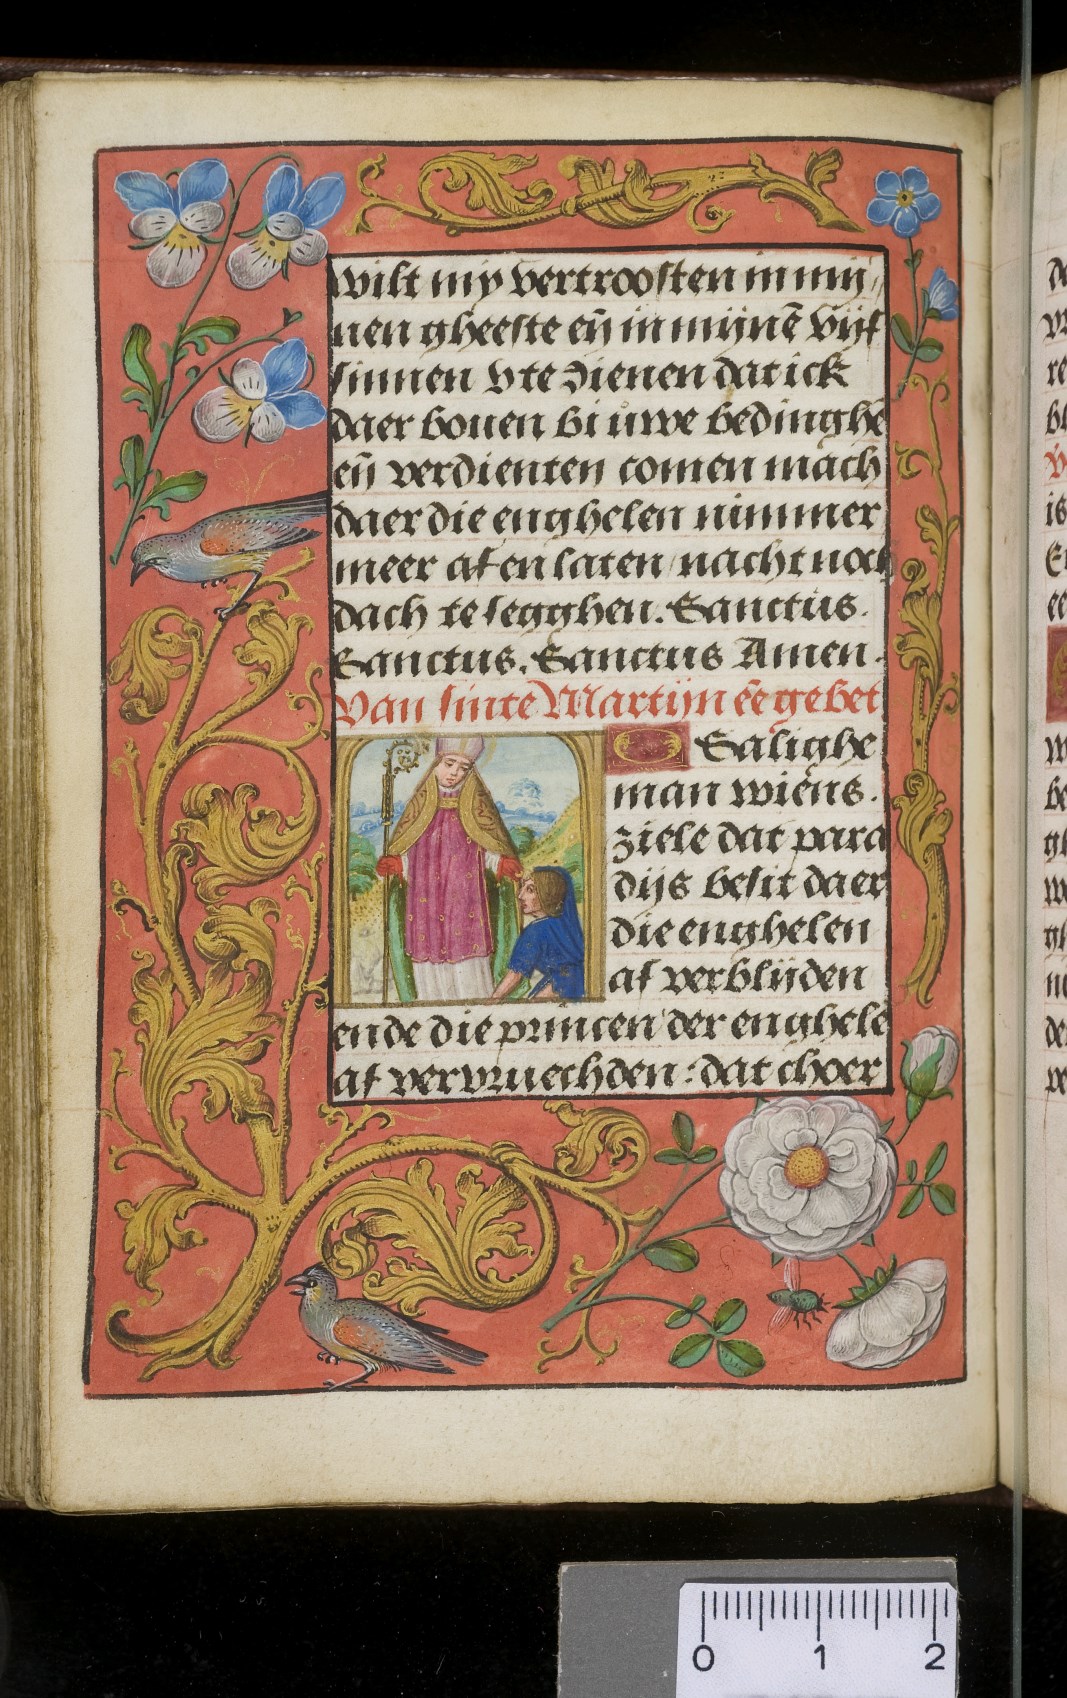 wilt mÿ vertroosten in mij/
nen gheeste eñ in mijnē vijf
sinnen v te dienen dat ick
daer bouen bi uwe bedinghē
eñ verdienten comen mach
daer die enghelen nimmer
meer af en laten/nacht noch
dach te segghen. Sanctus.
Sanctus. Sanctus Amen.
Van sinte Martijn ēe gebet
O Salighe
man wiens.
ziele dat para
dijs besit daer
die enghelen
af verblijden
ende die princen der enghelē
af vervruechden: dat choer
0 1 2